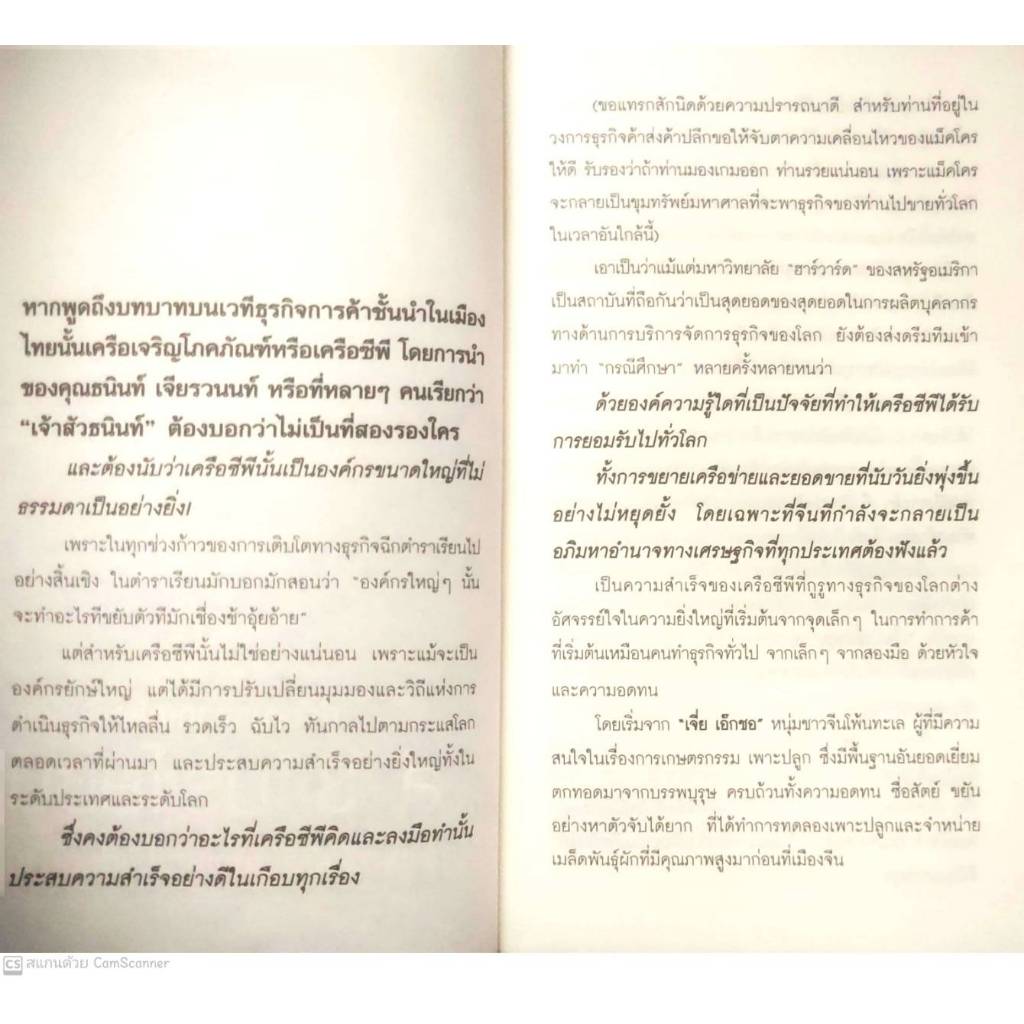 หากพูดถึงบทบาทบนเวทีธุรกิจการค้าชั้นนำในเมือง
ไทยนั้นเครือเจริญโภคภัณฑ์หรือเครือซีพี โดยการนำ
ของคุณธนินท์ เจียรวนนท์ หรือที่หลายๆ คนเรียกว่า
“เจ้าสัวธนินท์” ต้องบอกว่าไม่เป็นที่สองรองใคร
และต้องนับว่าเครือซีพีนั้นเป็นองค์กรขนาดใหญ่ที่ไม่
ธรรมดาเป็นอย่างยิ่ง!
เพราะในทุกช่วงก้าวของการเติบโตทางธุรกิจฉีกตำราเรียนไป
อย่างสิ้นเชิง ในตำราเรียนมักบอกมักสอนว่า “องค์กรใหญ่ๆ นั้น
จะทำอะไรทีขยับตัวทีมักเชื่องช้าอุ้ยอ้าย”
แต่สำหรับเครือซีพีนั้นไม่ใช่อย่างแน่นอน เพราะแม้จะเป็น
องค์กรยักษ์ใหญ่ แต่ได้มีการปรับเปลี่ยนมุมมองและวิถีแห่งการ
ดำเนินธุรกิจให้ไหลลื่น รวดเร็ว ฉับไว ทันกาลไปตามกระแสโลก
ตลอดเวลาที่ผ่านมา และประสบความสำเร็จอย่างยิ่งใหญ่ทั้งใน
ระดับประเทศและระดับโลก
ซึ่งคงต้องบอกว่าอะไรที่เครือซีพีคิดและลงมือทำนั้น
ประสบความสำเร็จอย่างดีในเกือบทุกเรื่อง
(ขอแทรกสักนิดด้วยความปรารถนาดี สำหรับท่านที่อยู่ใน
วงการธุรกิจค้าส่งค้าปลีกขอให้จับตาความเคลื่อนไหวของแม็คโคร
ให้ดี รับรองว่าถ้าท่านมองเกมออก ท่านรวยแน่นอน เพราะแม็คโคร
จะกลายเป็นขุมทรัพย์มหาศาลที่จะพาธุรกิจของท่านไปขายทั่วโลก
ในเวลาอันใกล้นี้)
เอาเป็นว่าแม้แต่มหาวิทยาลัย “ฮาร์วาร์ด” ของสหรัฐอเมริกา
เป็นสถาบันที่ถือกันว่าเป็นสุดยอดของสุดยอดในการผลิตบุคลากร
ทางด้านการบริการจัดการธุรกิจของโลก ยังต้องส่งดรีมทีมเข้า
มาทำ “กรณีศึกษา” หลายครั้งหลายหนว่า
ด้วยองค์ความรู้ใดที่เป็นปัจจัยที่ทำให้เครือซีพีได้รับ
การยอมรับไปทั่วโลก
ทั้งการขยายเครือข่ายและยอดขายที่นับวันยิ่งพุ่งขึ้น
อย่างไม่หยุดยั้ง โดยเฉพาะที่จีนที่กำลังจะกลายเป็น
อภิมหาอำนาจทางเศรษฐกิจที่ทุกประเทศต้องฟังแล้ว
เป็นความสำเร็จของเครือซีพีที่กูรูทางธุรกิจของโลกต่าง
อัศจรรย์ใจในความยิ่งใหญ่ที่เริ่มต้นจากจุดเล็กๆ ในการทำการค้า
ที่เริ่มต้นเหมือนคนทำธุรกิจทั่วไป จากเล็กๆ จากสองมือ ด้วยหัวใจ
และความอดทน
โดยเริ่มจาก “เจี่ย เอ็กชอ” หนุ่มชาวจีนโพ้นทะเล ผู้ที่มีความ
สนใจในเรื่องการเกษตรกรรม เพาะปลูก ซึ่งมีพื้นฐานอันยอดเยี่ยม
ตกทอดมาจากบรรพบุรุษ ครบถ้วนทั้งความอดทน ซื่อสัตย์ ขยัน
อย่างหาตัวจับได้ยาก ที่ได้ทำการทดลองเพาะปลูกและจำหน่าย
เมล็ดพันธุ์ผักที่มีคุณภาพสูงมาก่อนที่เมืองจีน
CS สแกนด้วย CamScanner